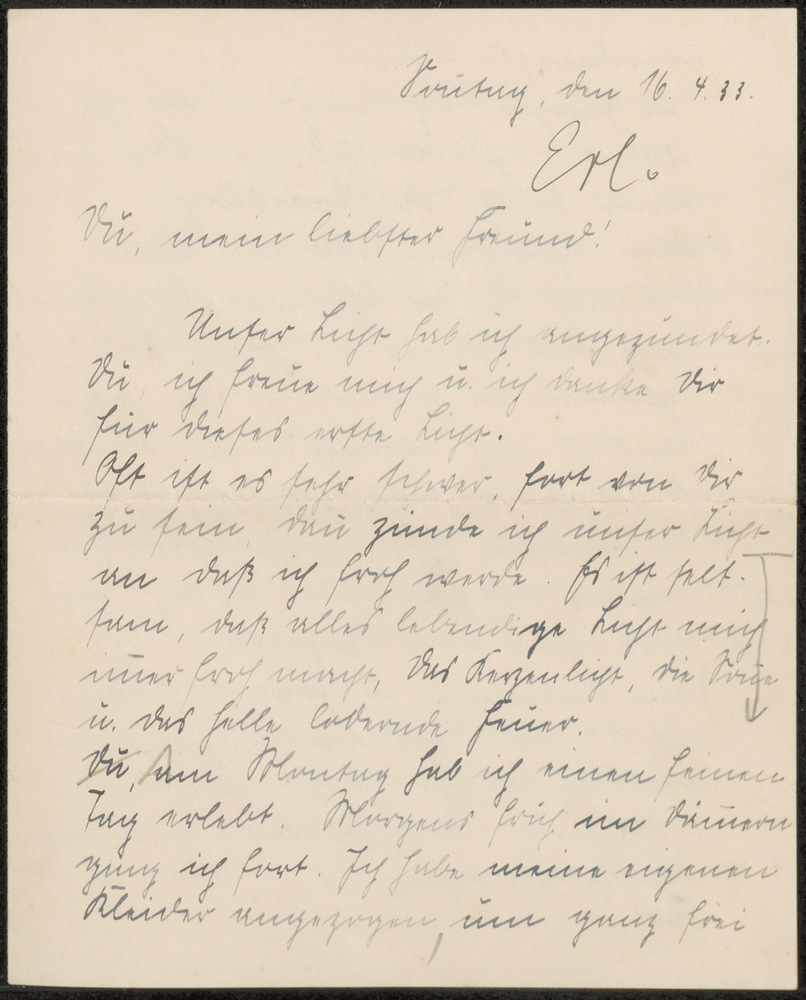 Sontag, den 16. 4. 33.
Erl.
Du, mein liebster Freund!
Unser Licht hab ich angezündet.
Du, ich freue mich u. ich danke Dir
für dieses erste Licht.
Oft ist es sehr schwer, fort von Dir
zu sein, dan zünde ich unser Licht
an daß ich froh werde. Es ist selt-
sam, daß alles lebendige Licht mich
imer froh macht, das Kerzenlicht, die Sone
u. das helle lodernde Feuer.
Du, am Montag hab ich einen feinen
Tag erlebt. Morgens früh im Dämern
ging ich fort. Ich habe meine eigenen
Kleider angezogen, um ganz frei